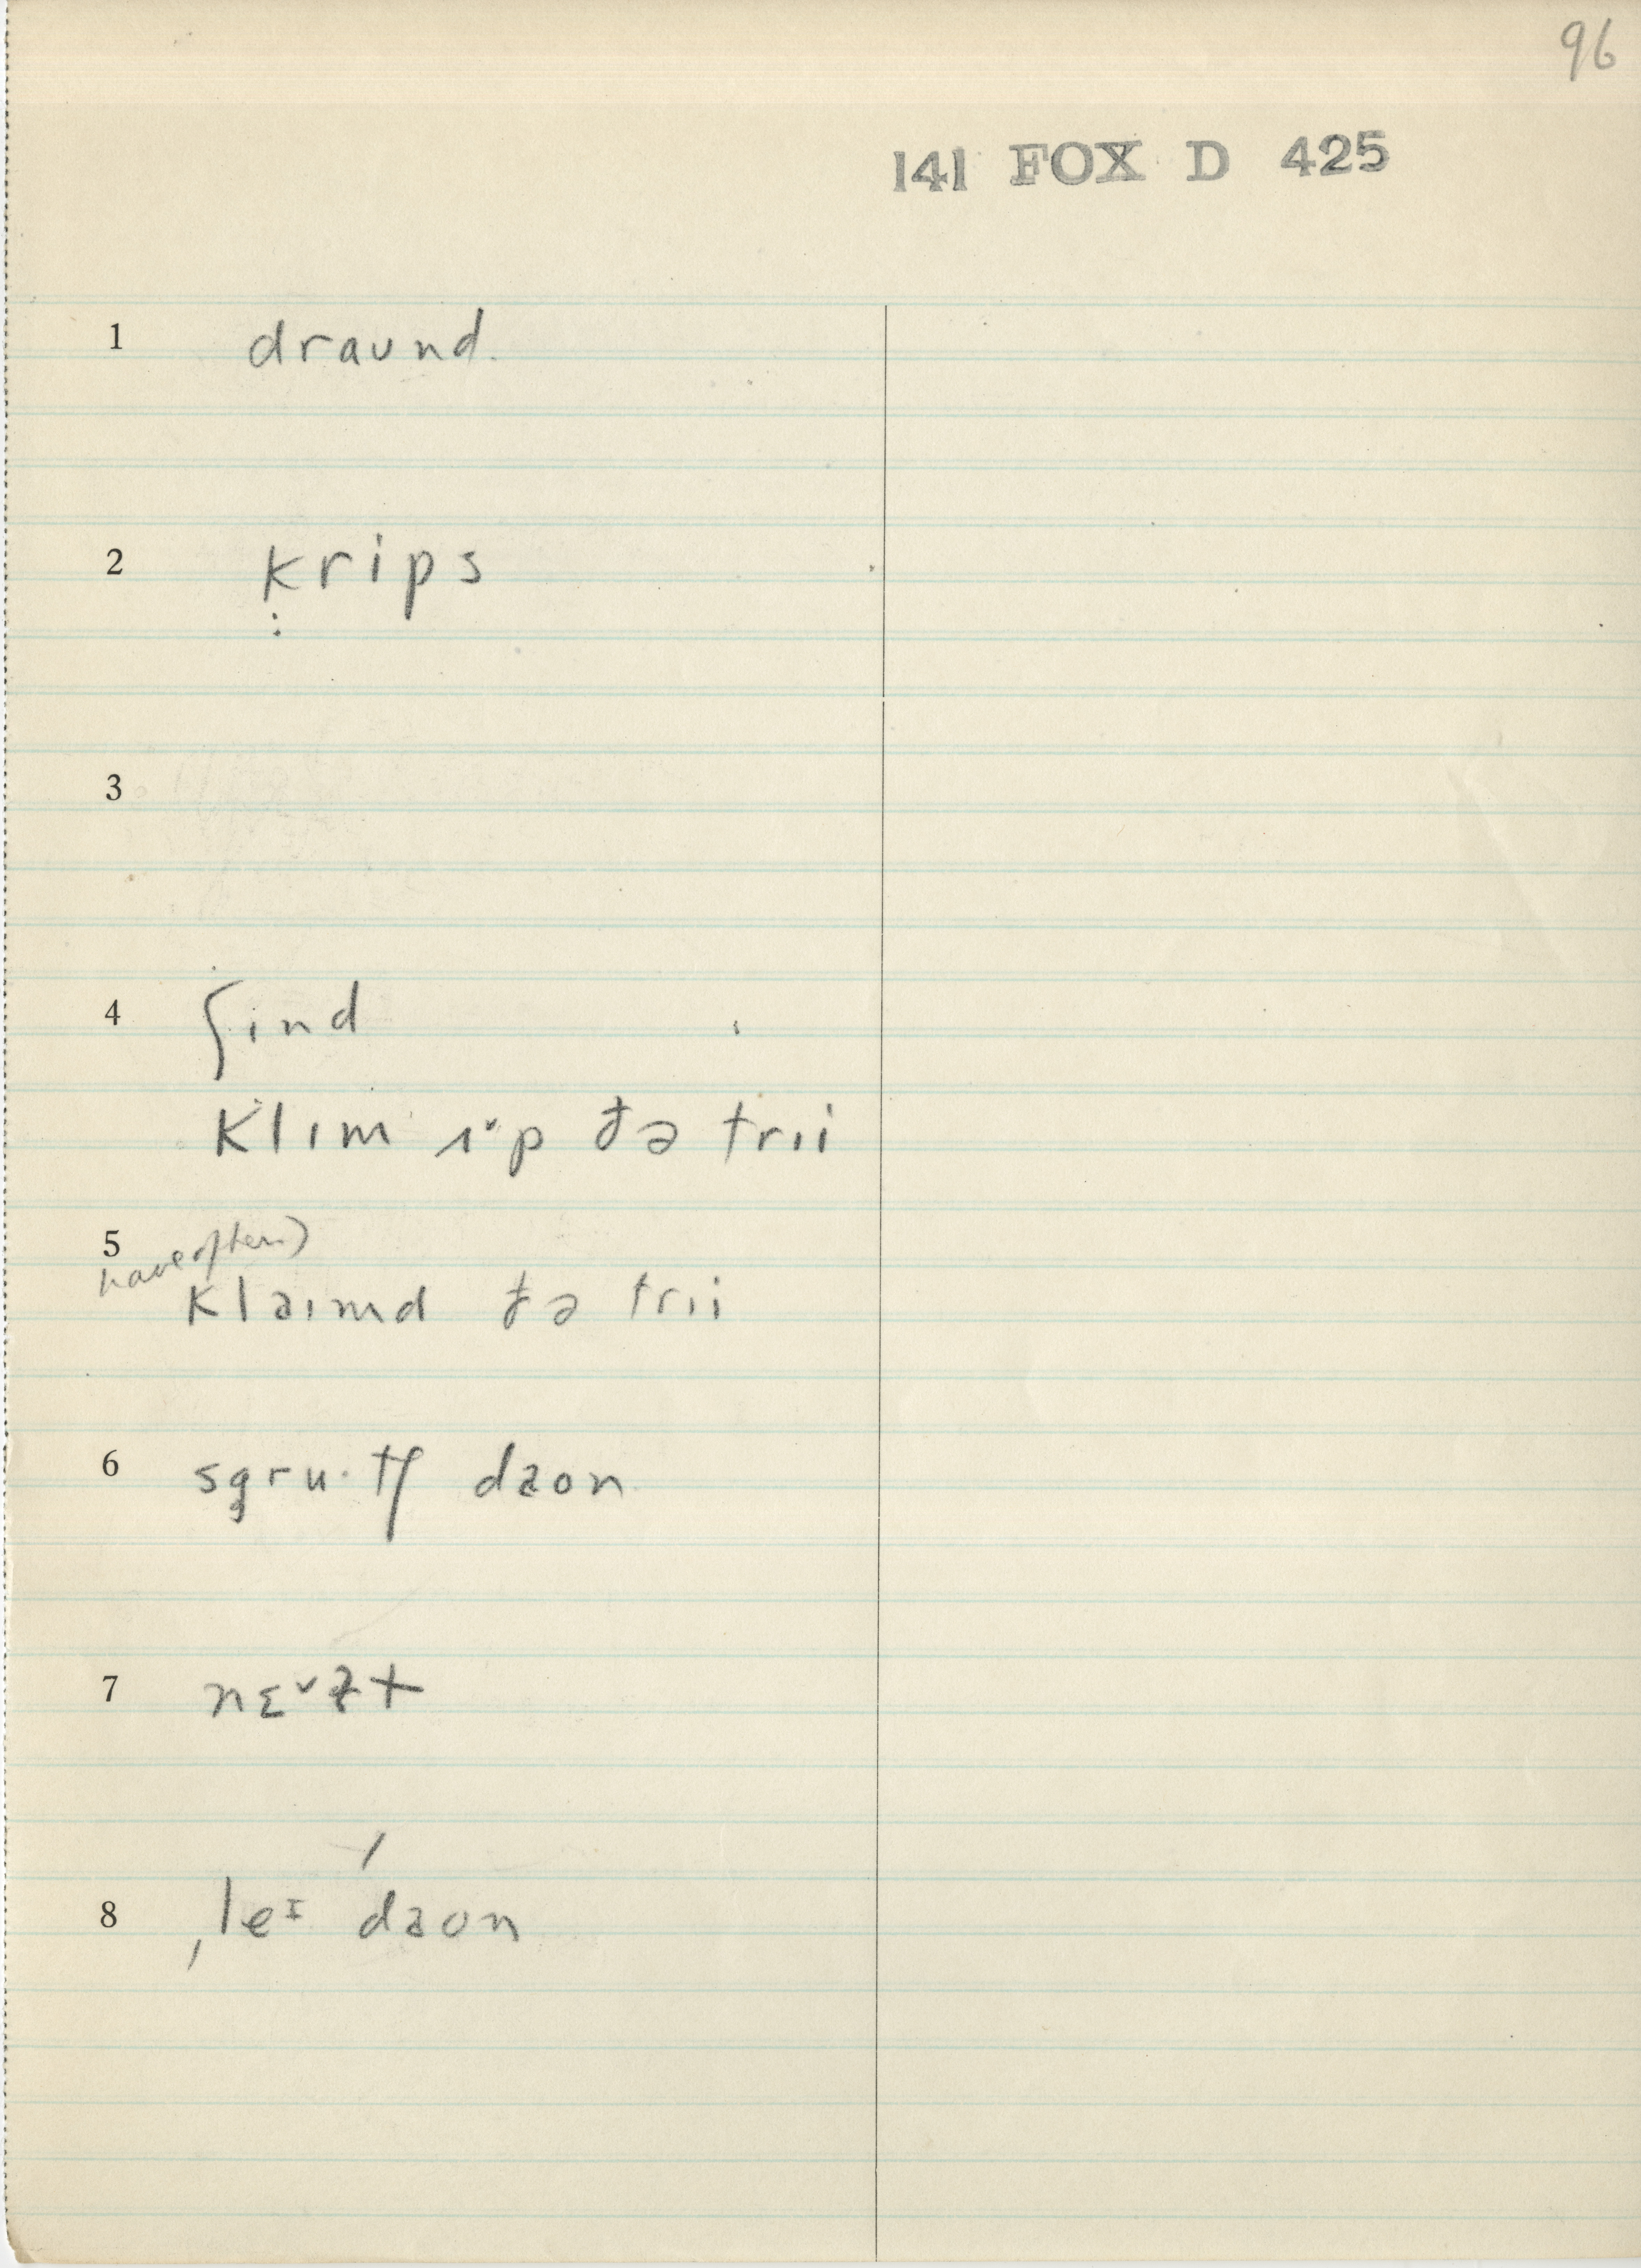 96
141 FOX D 425
1 draʊnd
2 krips
3
4 ʃɪnd
klɪm ɪˇp ðə trɪi
5 have often)
klaɪmd ðə trɪi
6 sgru·tʃ daʊn
7 nɛˇɫt
8 ˌleɪ daʊn